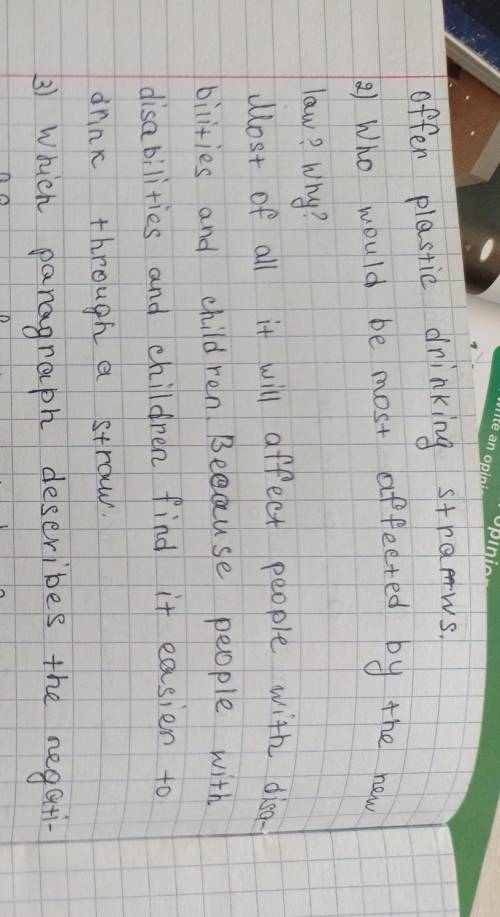 offer plastic drinking straws.
2) Who would be most affected by the new
law? Why?
Most of all it will affect people with disa-
bilities and children. Because people with
disabilities and children find it easier to
drink through a straw.
3) Which paragraph describes the negati-
write an opini
opinio